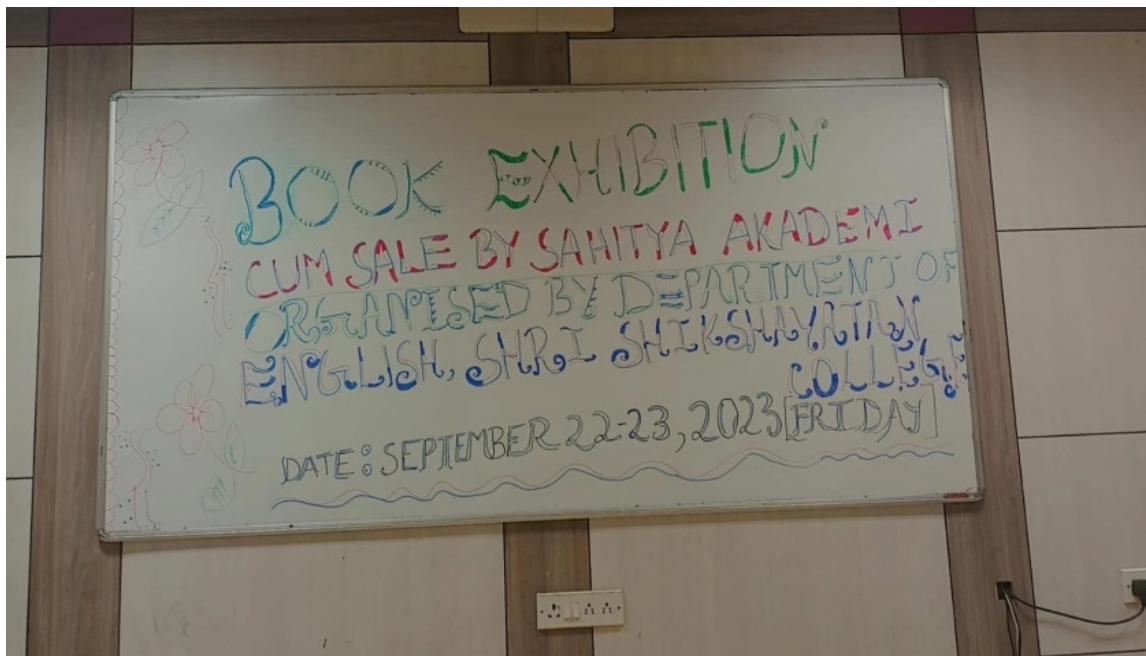 BOOK EXHIBITION
CUM SALE BY SAHITYA AKADEMI
ORGANISED BY DEPARTMENT OF
ENGLISH, SHRI SHIKSHAYATAN
COLLEGE
DATE: SEPTEMBER 22-23, 2023 [FRIDAY]